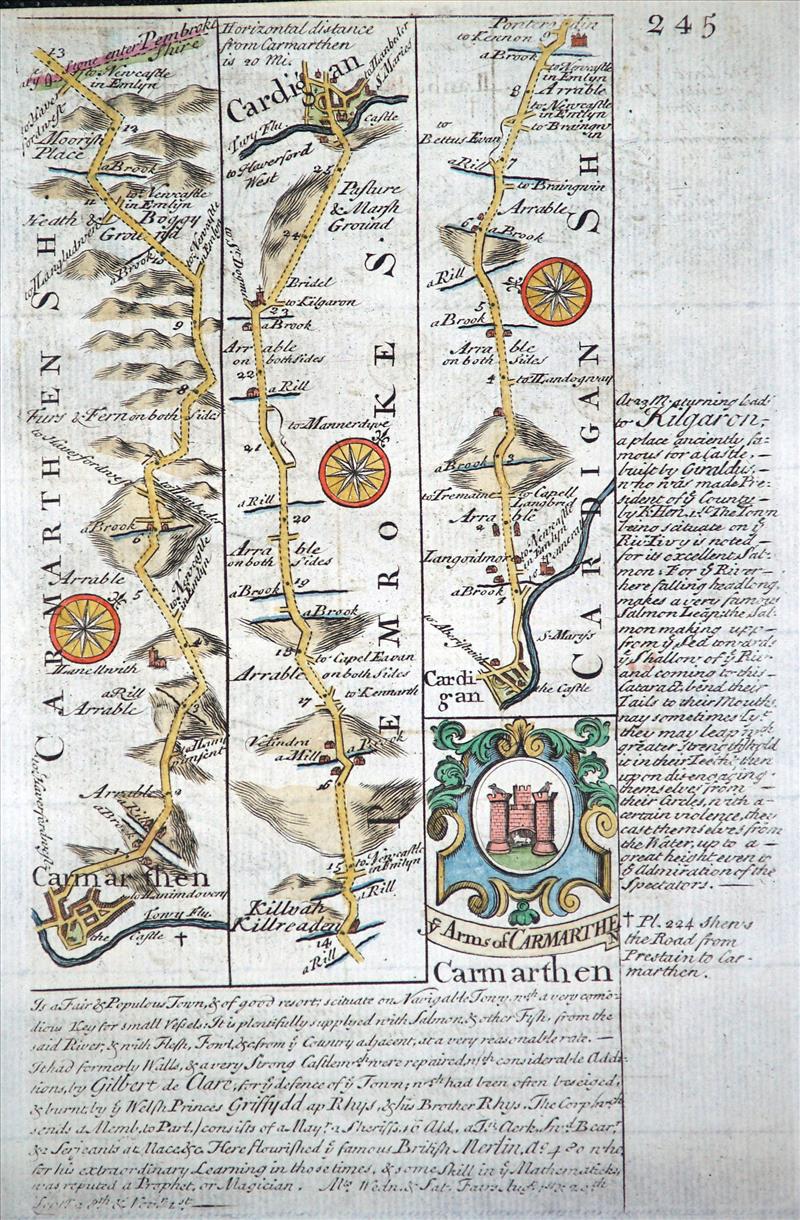 245
13
enter Pembroke
Shire
to Newcastle
in Emlyn
12
Moorish
Place
a Brook
to Newcastle
in Emlyn
11
Heath & Boggy
Ground
to Llangludwen
a Brook 10
to Newcastle
in Emlyn
9
8
Furs & Fern on both Sides
to Haverfordwest
7
a Brook
6
to Newcastle
in Emlyn
Arrable
5
4
Lanellwith
a Rill
Arrable
3
2
Arrable
a Rill
a Brook
1
Carmarthen
to Lanimdovery
Towy Flu.
the Castle †
CARMARTHEN SH
Horizontal distance
from Carmarthen
is 20 Mi.
Cardigan
to Llanbeder
S. Maries
Castle
Tivy Flu
to Haverford
West
25
Pasture
& Marsh
Ground
24
to St. Dogmels
Bridel
to Kilgaron
23
a Brook
Arrable
on both Sides
22
a Rill
to Mannerdyve
21
a Rill
20
Arrable
on both Sides
19
a Brook
a Brook
18
to Capel Eavan
Arrable on both Sides
to Kennarth
17
Velindra a Brook
a Mill
16
15
to Newcastle
in Emlyn
a Rill
Killvah
Killreaden
14
a Rill
PEMROKE S.
to Kennon 9
a Brook
to Newcastle
in Emlyn
8
Arrable
to Newcastle
in Emlyn
to Braingwin
to
Bettus Evan
a Rill 7
to Braingwin
Arrable
6
a Brook
a Rill
5
a Brook
Arrable
on both Sides
4
to Llandogway
a Brook
3
to Tremaine
to Capell
Langbred
Arrable
2
to Newcastle
in Emlyn
Langoidmore
a Brook
1
to Aberistwith
St. Marys
Cardigan
the Castle
CARDIGAN SH
At 23 M. a turning lead
to Kilgaron,
a place anciently fa-
mous for a Castle,
built by Giraldus,
who was made Pre-
sident of yͤ County
by K. Hen. 1st. The Town
being scituate on yͤ
Riv. Tivy is noted
for its excellent Sal-
mon: For yͤ River
here falling headlong,
makes a very famous
Salmon Leap, the Sal-
mon making upp
from yͤ Sed towards
yͤ Shallow of yͤ Riv.
and coming to this
Cataract, bend their
Tails to their Mouths,
nay sometimes
they may leap with
greater strength hold
it in their Teeth, then
upon disengaging
themselves from
their Circles, with a
certain violence, they
cast themselves from
the Water, up to a
great height even to
yͤ Admiration of the
Spectators.
† Pl. 224 Shews
the Road from
Prestain to Car-
marthen.
yͤ Arms of CARMARTHEN
Carmarthen
Is a Fair & Populous Town, & of good resort; scituate on Navigable Towy, wth a very como-
dious Key for small Vessels: It is plentifully supplyed with Salmon, & other Fish, from the
said River, & with Flesh, Fowl, &c. from yͤ Country adjacent, at a very reasonable rate.
It had formerly Walls, & a very Strong Castle wch were repaired, wth considerable Addi-
tions, by Gilbert de Clare, for yͤ defence of yͤ Town; wch had been often beseiged,
& burnt, by yͤ Welsh Princes Griffydd ap Rhys, & his Brother Rhys. The Corp. wch
sends a Memb. to Parl. consists of a Mayr. 2 Sheriffs, 16 Ald. a Tn. Clerk, Swd. Bearr.
& 2 Serjeants at Mace &c. Here flourished yͤ famous British Merlin, Ao. 480 who
for his extraordinary Learning in those times, & some Skill in yͤ Mathematicks,
was reputed a Prophet, or Magician. Mts. Wedn. & Sat. Fairs